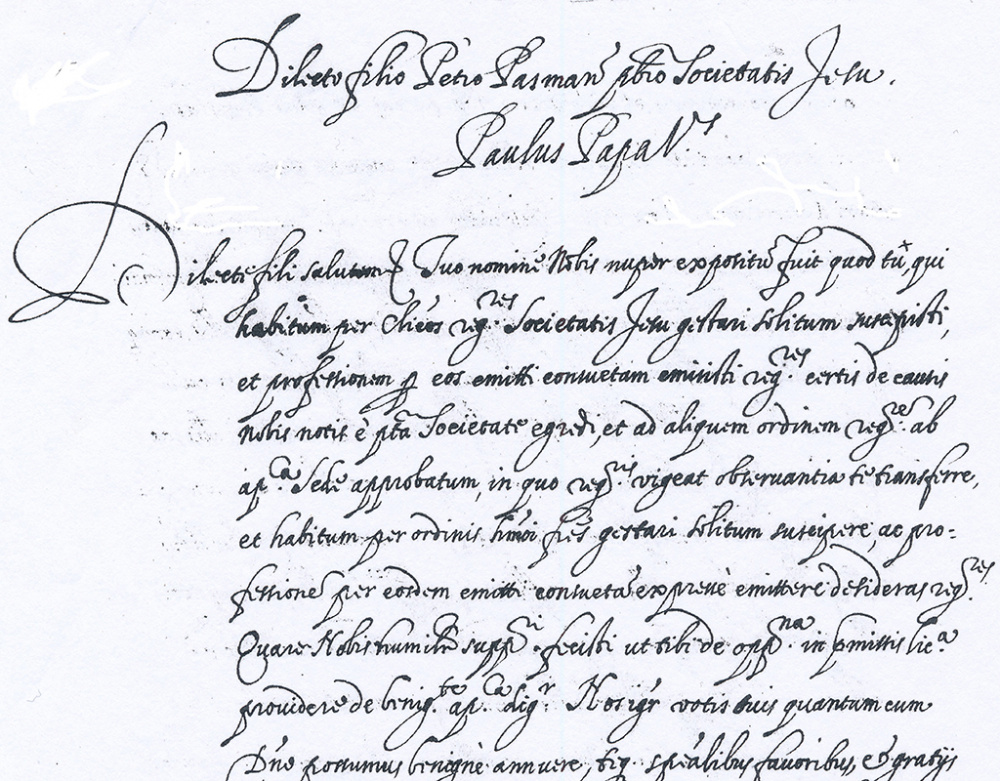 Dilecto filio Petro Pasman pbro Societatis Jesu.
Paulus Papa V.s
Dilecte fili salutem & Tuo nomine Nobis nuper expositu fuit quod tu, qui
habitum per Clicos reg.res Societatis Jesu gestari solitum suscepisti,
et professionem p eos emitti consuetam emisisti reg.res certis de causis
Nobis notis è pta Societate egredi, et ad aliquem ordinem reg.rem ab
ap.ca Sede approbatum, in quo reg.ris vigeat observantia te transferre,
et habitum per ordinis hmoi fres gestari solitum suscipere, ac pro-
fessione per eosdem emitti consueta expresse emittere desideras reg.res
Quare Nobis humilr supp.ri fecisti ut tibi de opp.na in pmissis lic.a
providere de benig.te ap.ca dig.r Nos igr votis tuis quantum cum
Dno possumus benigne annuere, teq. spealibus favoribus, et gratijs